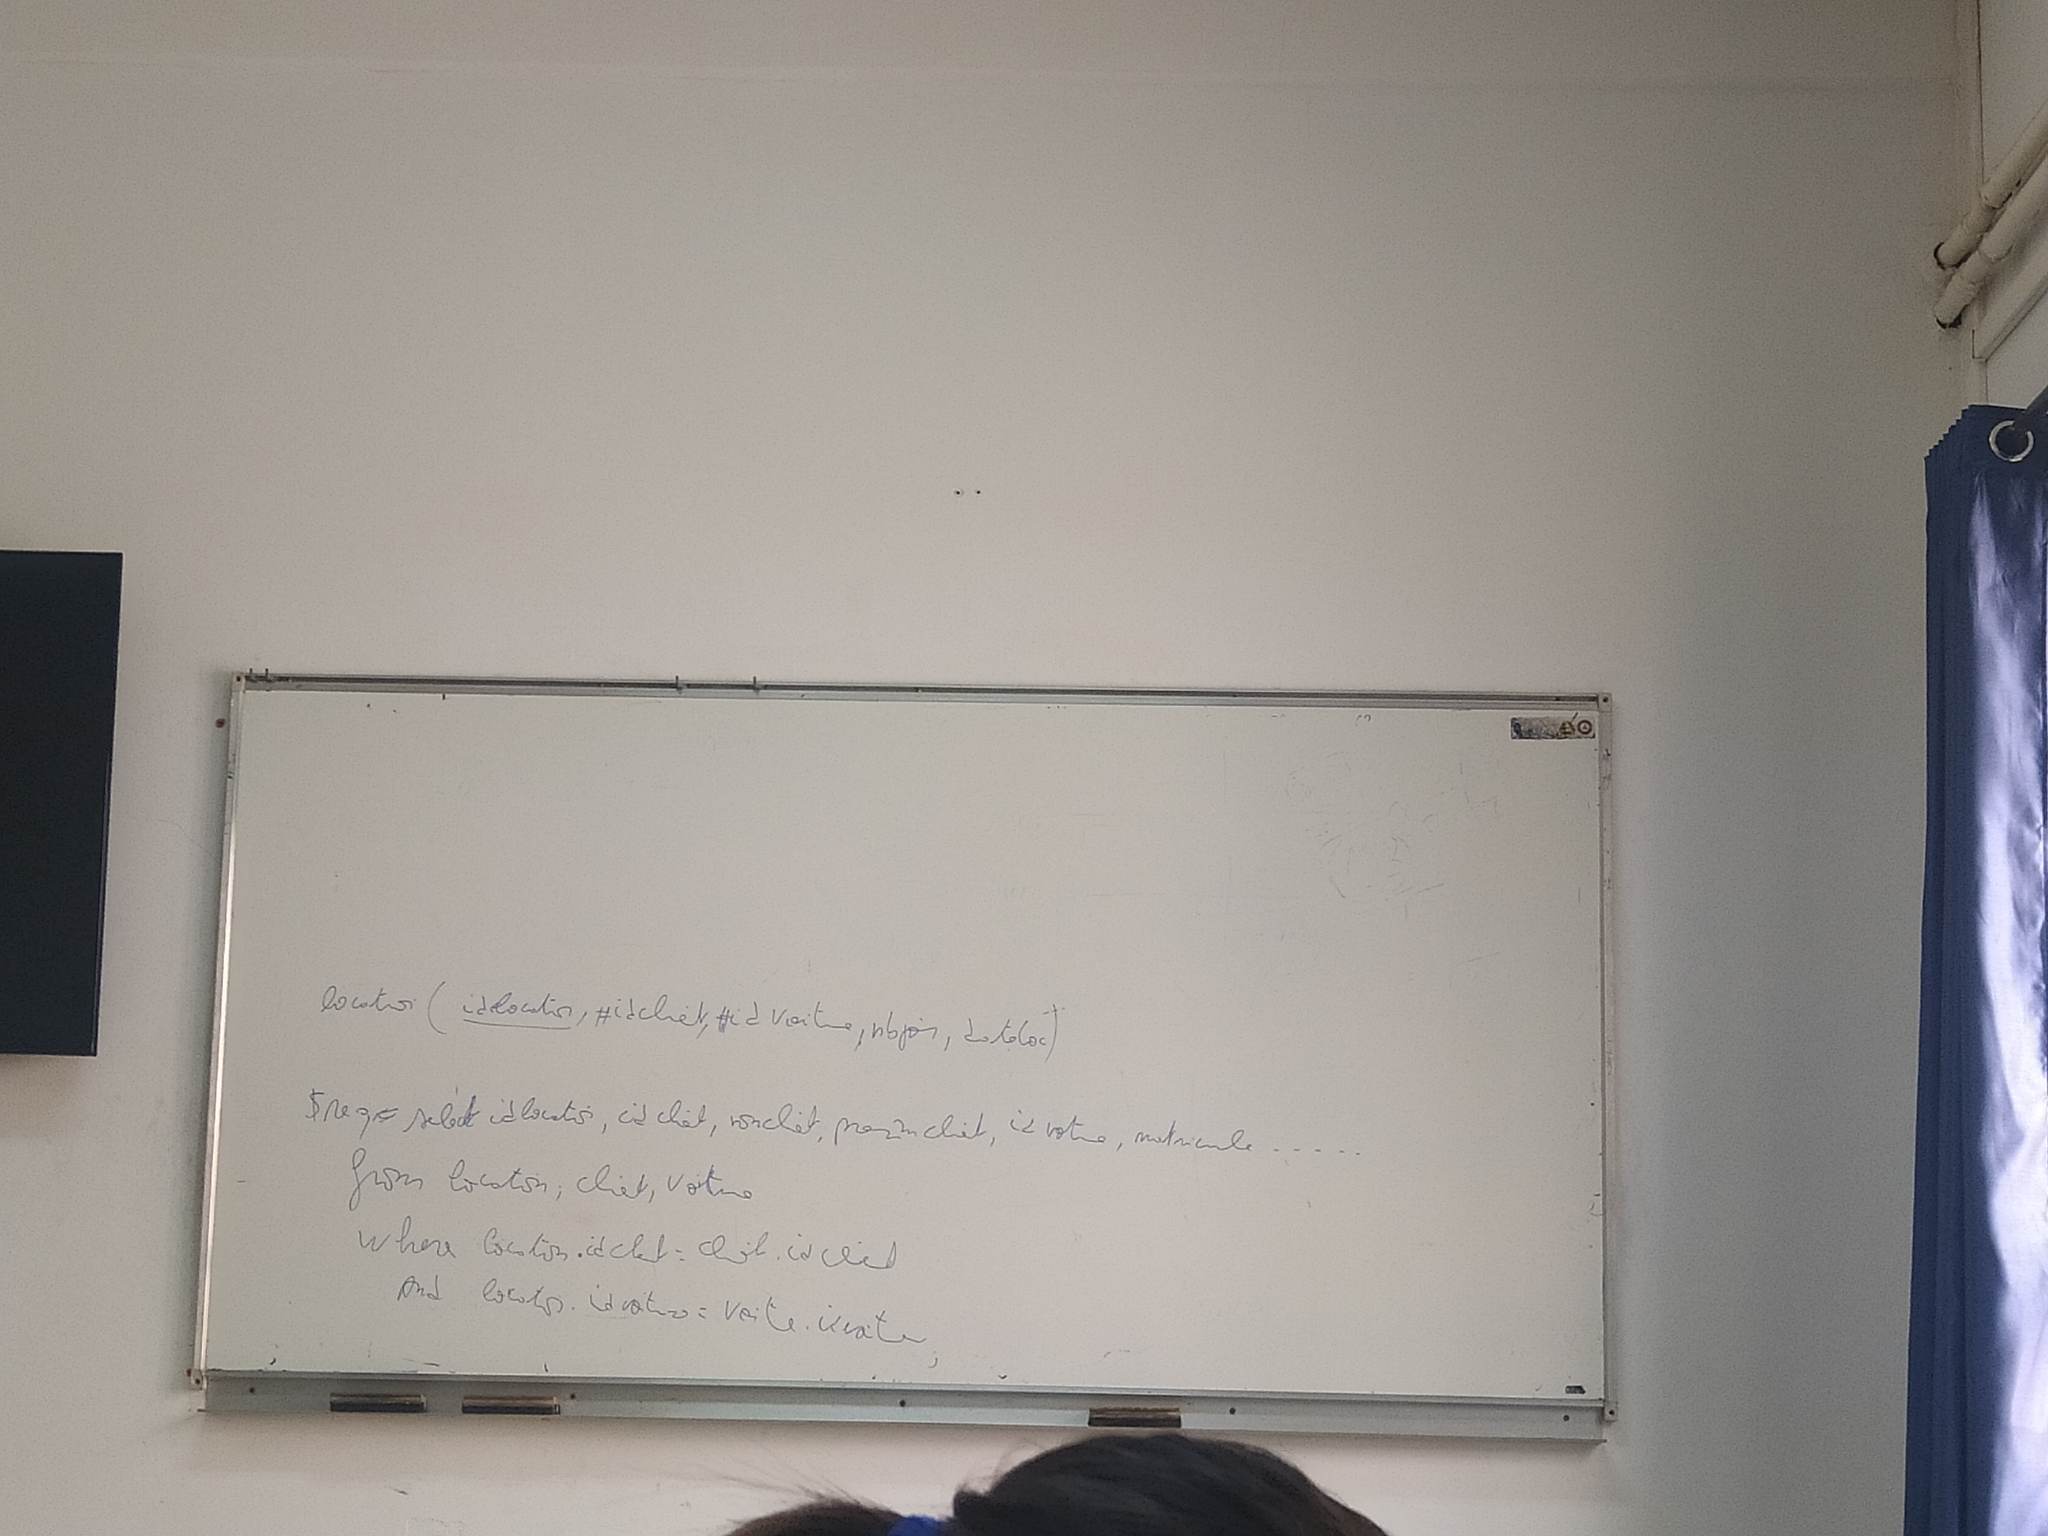 location ( idlocation, #idclient, #idvoiture, nbjours, dateloc)
$req= select idlocation, idclient, nomclient, prenomclient, idvoiture, matricule .....
from location, client, voiture
where location.idclient = client.idclient
And location.idvoiture = voiture.idvoiture;